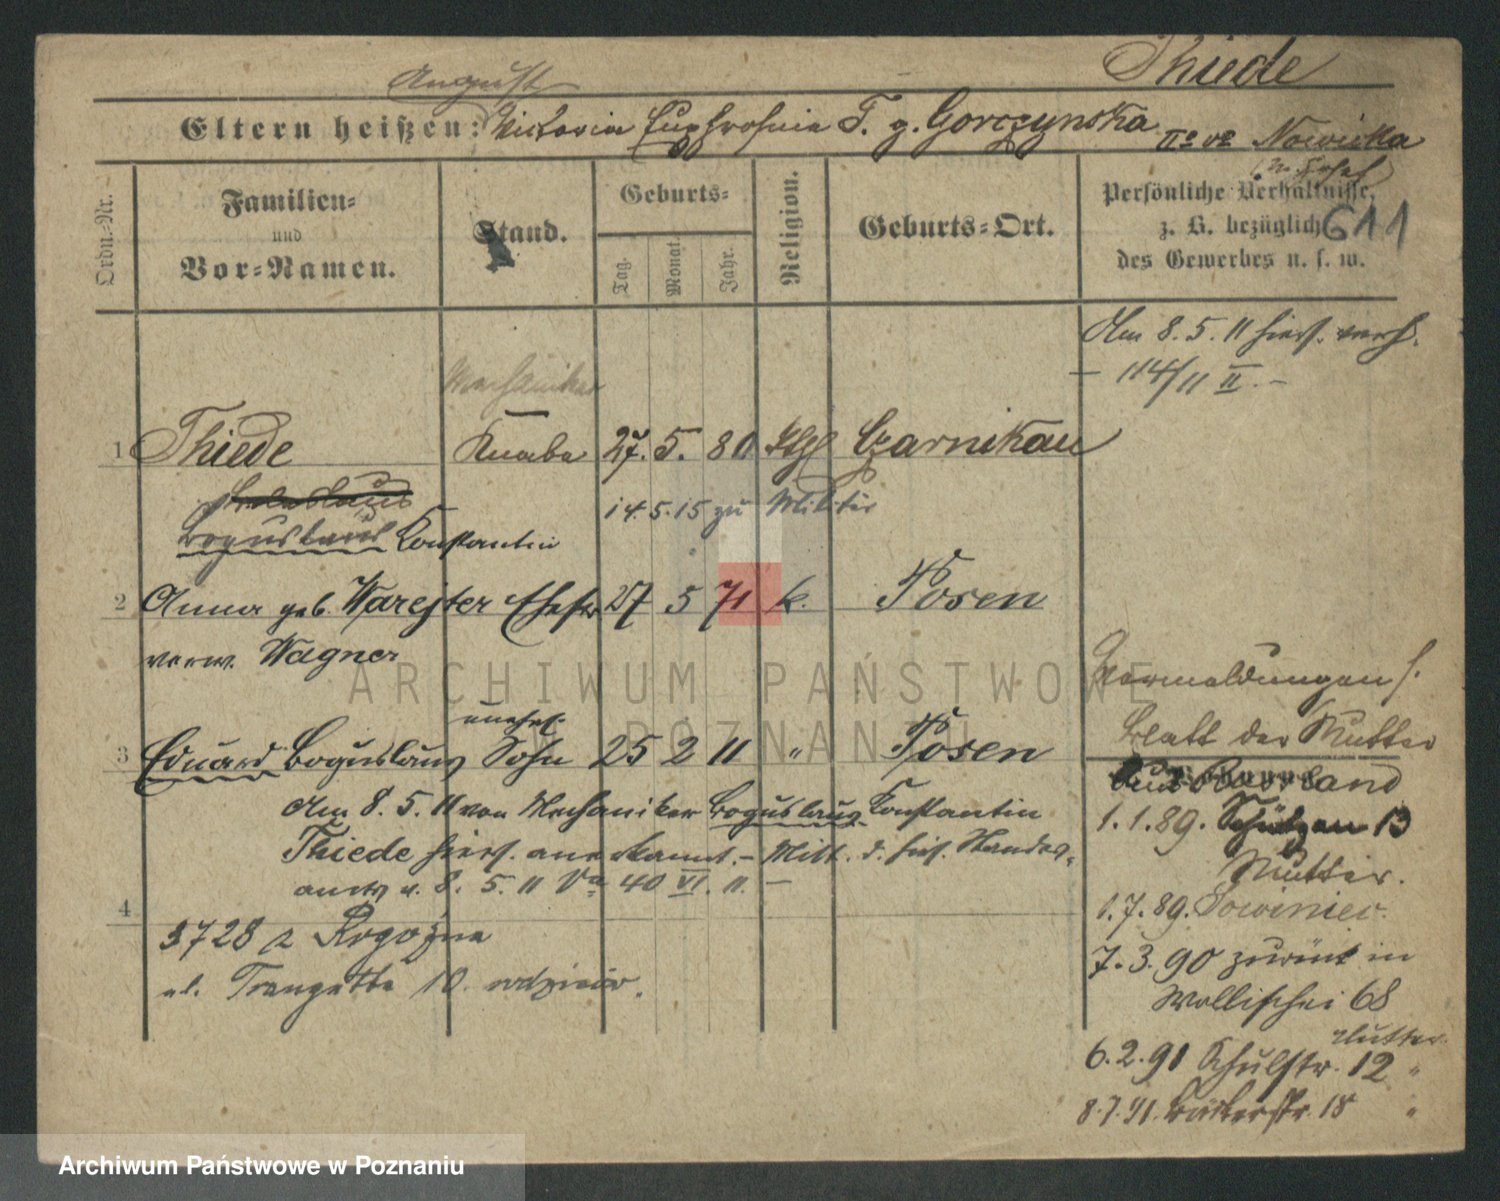 Thiede
August
Eltern heißen: Victoria Euphrosnia T. g. Gorczynska IIo vo Nowicka
Ordn.-Nr.
Familien-
und
Vor-Namen.
Stand.
Geburts-
Tag.
Monat.
Jahr.
Religion.
Geburts-Ort.
Persönliche Verhältnisse,
z. B. bezüglich
des Gewerbes u. s. w.
611
Am 8. 5. 11 hiers. verh.
– 114/11 II. –
Mechaniker
1 Thiede Knabe 27. 5. 80 Kth Czarnikau
Boleslaus 14. 5. 15 zu Militär
Boguslaus Konstantin
2 Anna geb. Warejter Ehefr 27 5 71 k. Posen
verw. Wagner
Vermeldungen s.
Blatt der Mutter
unehel.
3 Eduard Boguslaus Sohn 25 2 11 " Posen
Am 8. 5. 11 von Mechaniker Boguslaus Konstantin
Thiede hiers. anerkannt. – Mitt. d. hies. Standes-
amts v. 8. 5. 11 Va 40 VI. 11. –
4
3728 z Rogoźna
ul. Traugutta 10.
1.1.89. Schützen 13
Mutter.
1.7.89. Sowiniec.
7.3.90 zurück in
Wallischei 68
Mutter
6.2.91 Schulstr. 12 "
8.7.91. Bäckerstr. 18 "
ARCHIWUM PAŃSTWOWE
POZNANIU
Archiwum Państwowe w Poznaniu